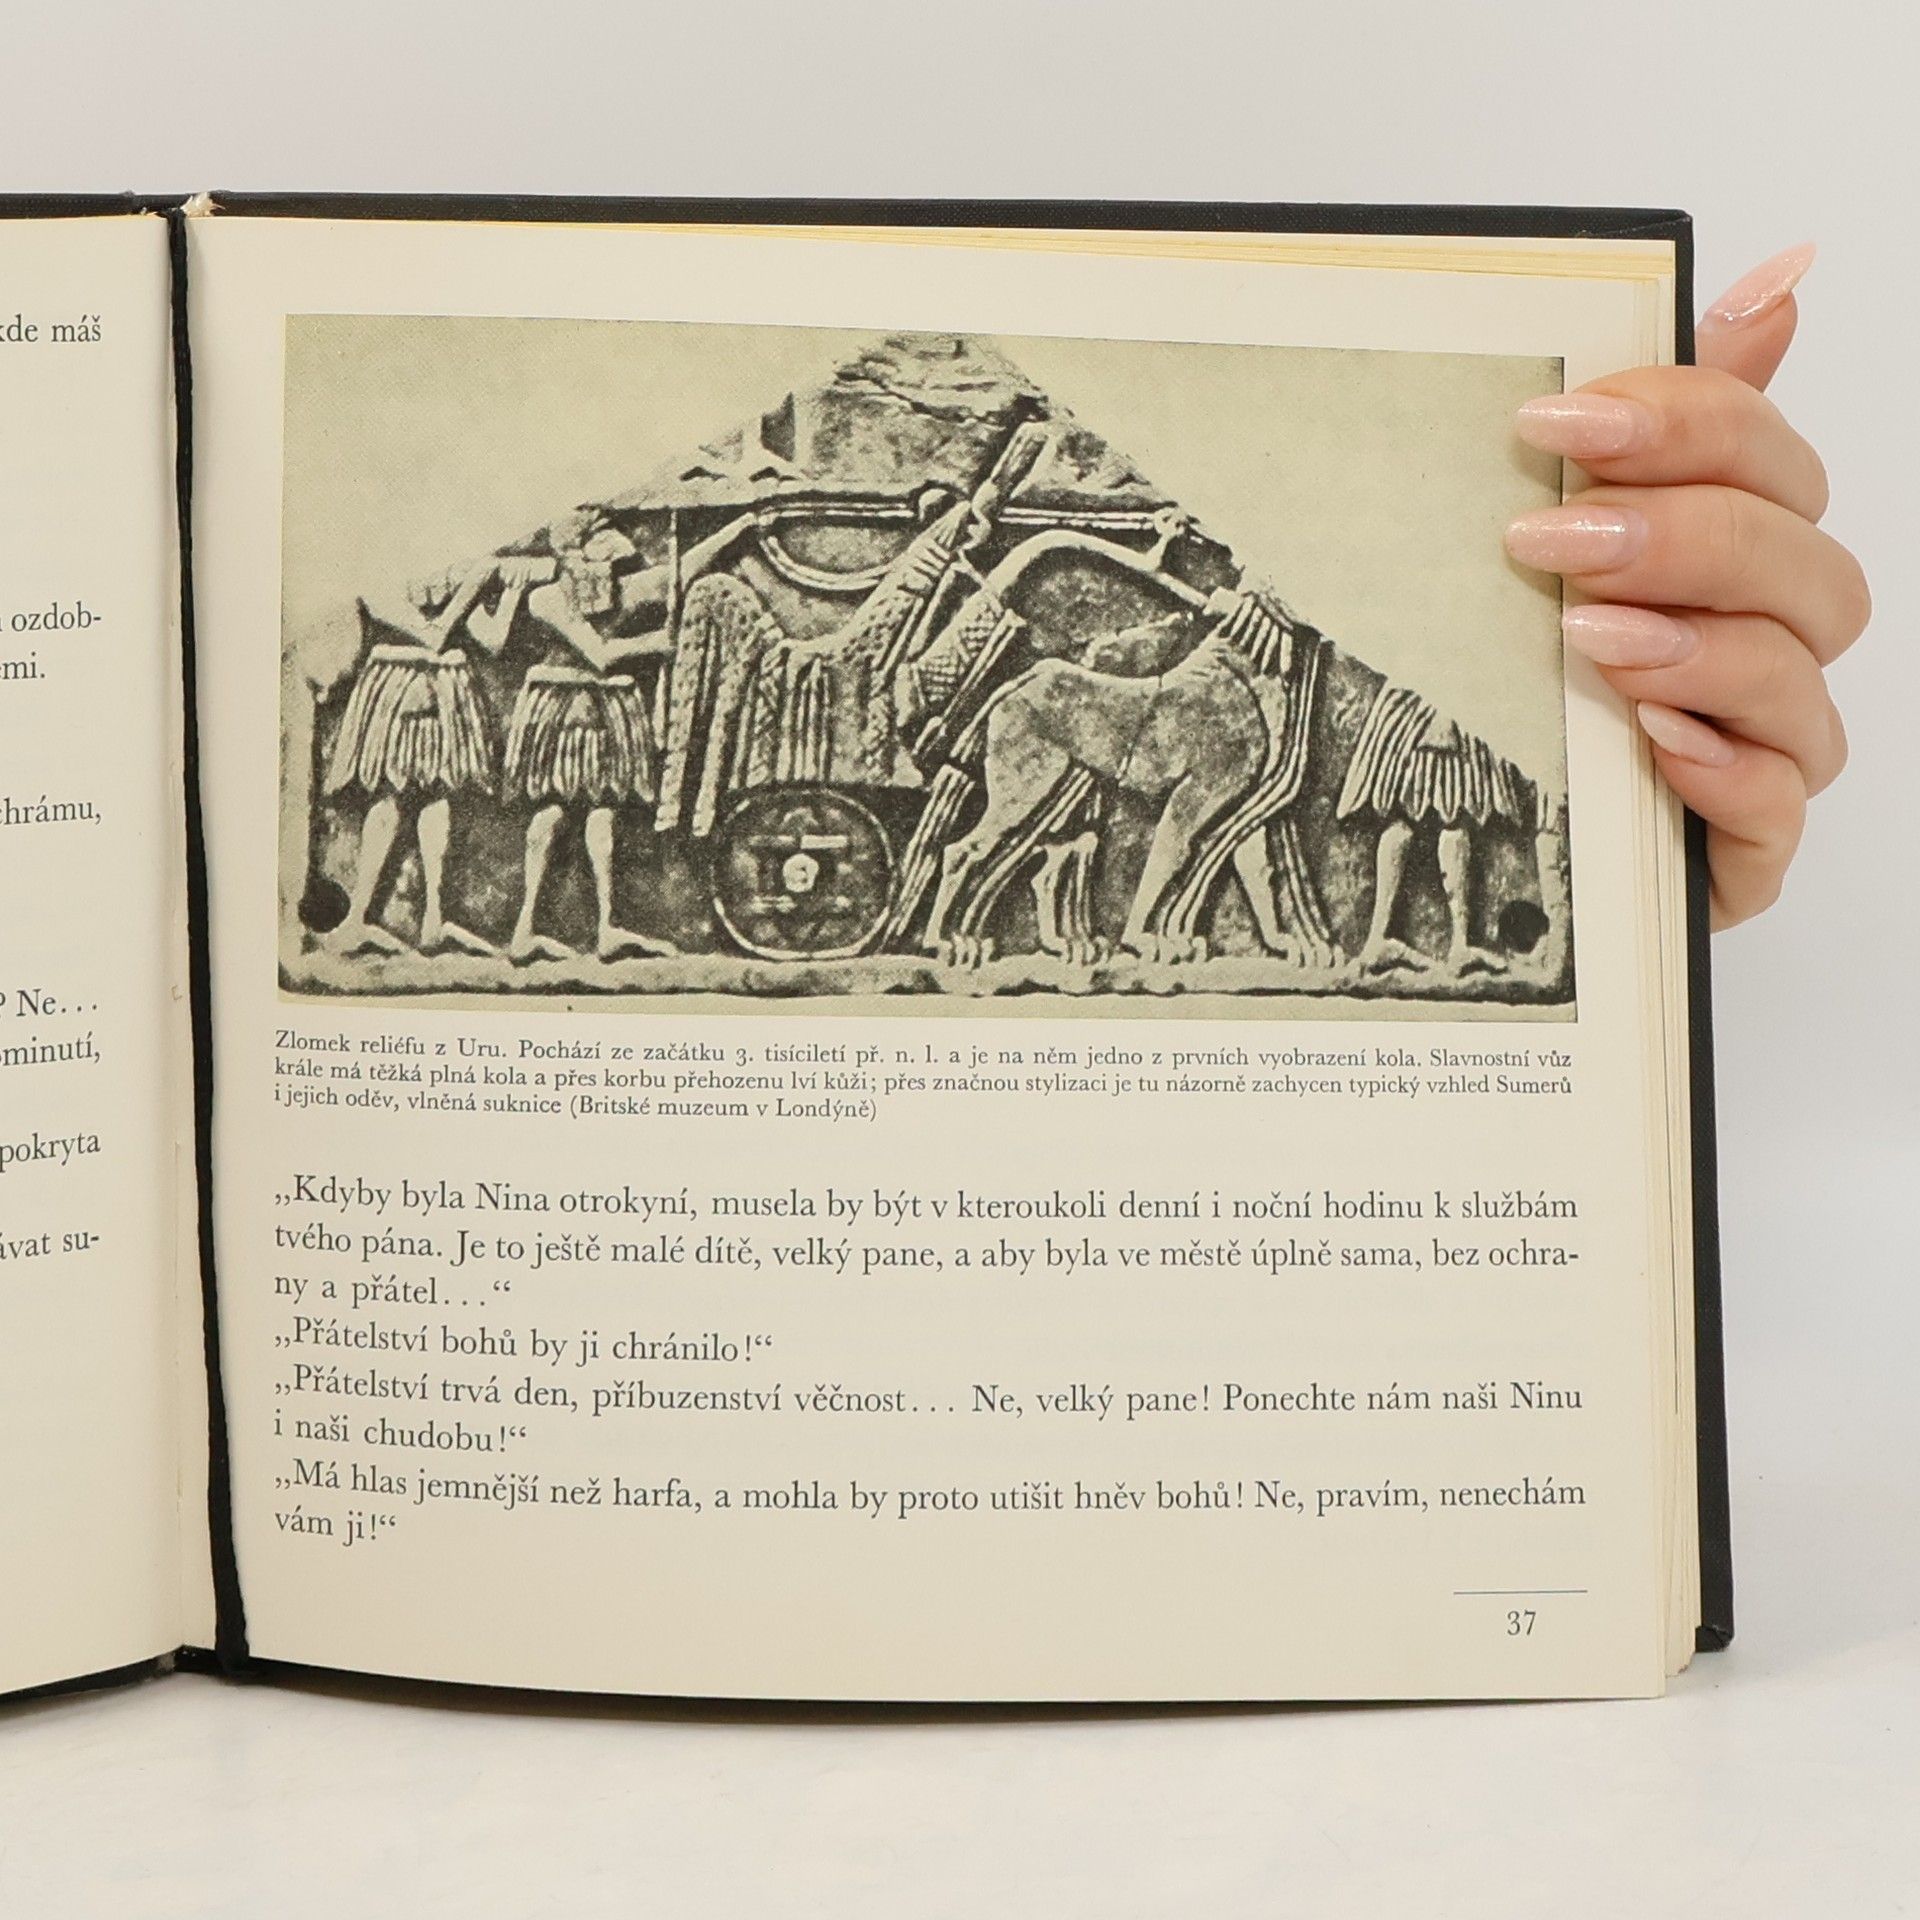 kde máš
ozdob-
emi.
chrámu,
? Ne...
minutí,
pokryta
ávat su-
Zlomek reliéfu z Uru. Pochází ze začátku 3. tisíciletí př. n. l. a je na něm jedno z prvních vyobrazení kola. Slavnostní vůz
krále má těžká plná kola a přes korbu přehozenu lví kůži; přes značnou stylizaci je tu názorně zachycen typický vzhled Sumerů
i jejich oděv, vlněná suknice (Britské muzeum v Londýně)
„Kdyby byla Nina otrokyní, musela by být v kteroukoli denní i noční hodinu k službám
tvého pána. Je to ještě malé dítě, velký pane, a aby byla ve městě úplně sama, bez ochra-
ny a přátel...“
„Přátelství bohů by ji chránilo!“
„Přátelství trvá den, příbuzenství věčnost... Ne, velký pane! Ponechte nám naši Ninu
i naši chudobu!“
„Má hlas jemnější než harfa, a mohla by proto utišit hněv bohů! Ne, pravím, nenechám
vám ji!“
37